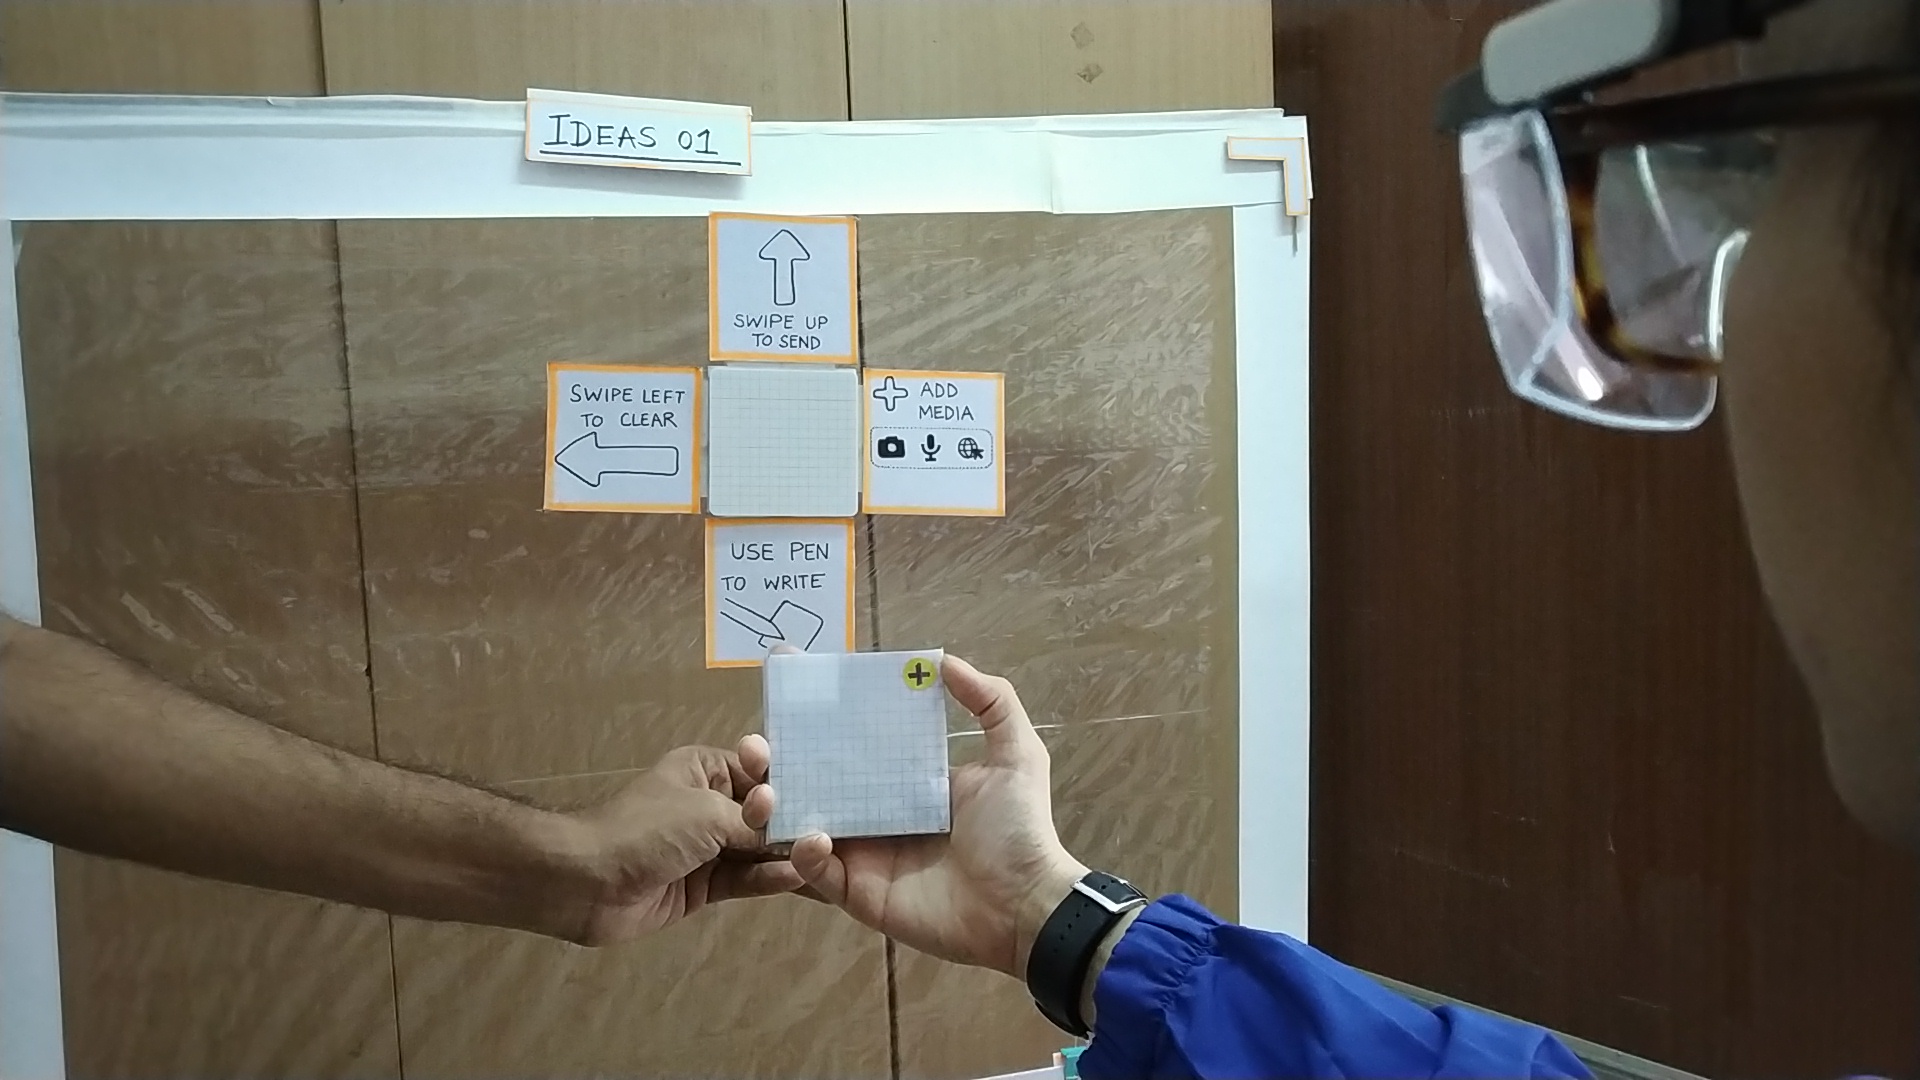 IDEAS 01
SWIPE UP
TO SEND
SWIPE LEFT
TO CLEAR
ADD
MEDIA
USE PEN
TO WRITE
+